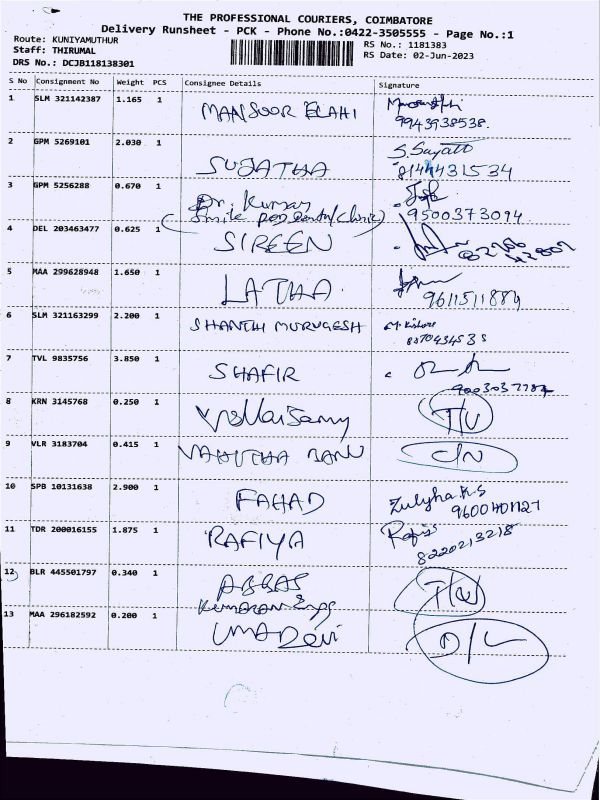 THE PROFESSIONAL COURIERS, COIMBATORE
Delivery Runsheet - PCK - Phone No.:0422-3505555 - Page No.:1
Route: KUNIYAMUTHUR
Staff: THIRUMAL
DRS No.: DCJB118138301
RS No.: 1181383
RS Date: 02-Jun-2023
S No Consignment No Weight PCS Consignee Details Signature
1 SLM 321142387 1.165 1 MANSOOR ELAHI
9943938538.
2 GPM 5269101 2.030 1 SUJATHA
3 GPM 5256288 0.670 1 Dr. Kumar 9500373094
(Smile
4 DEL 203463477 0.625 1 SIREEN
5 MAA 299628948 1.650 1 LATHA
6 SLM 321163299 2.200 1 SHANTHI MURUGESH M. Kishore
7 TVL 9835756 3.850 1 SHAFIR
8 KRN 3145768 0.250 1 Vellaisamy
9 VLR 3183704 0.415 1 BANU
10 SPB 10131638 2.900 1 FAHAD Zulyha.K.S
11 TDR 200016155 1.875 1 RAFIYA
8220213218
12 BLR 445501797 0.340 1 ABBAS
13 MAA 296182592 0.200 1 UMA Devi D/L